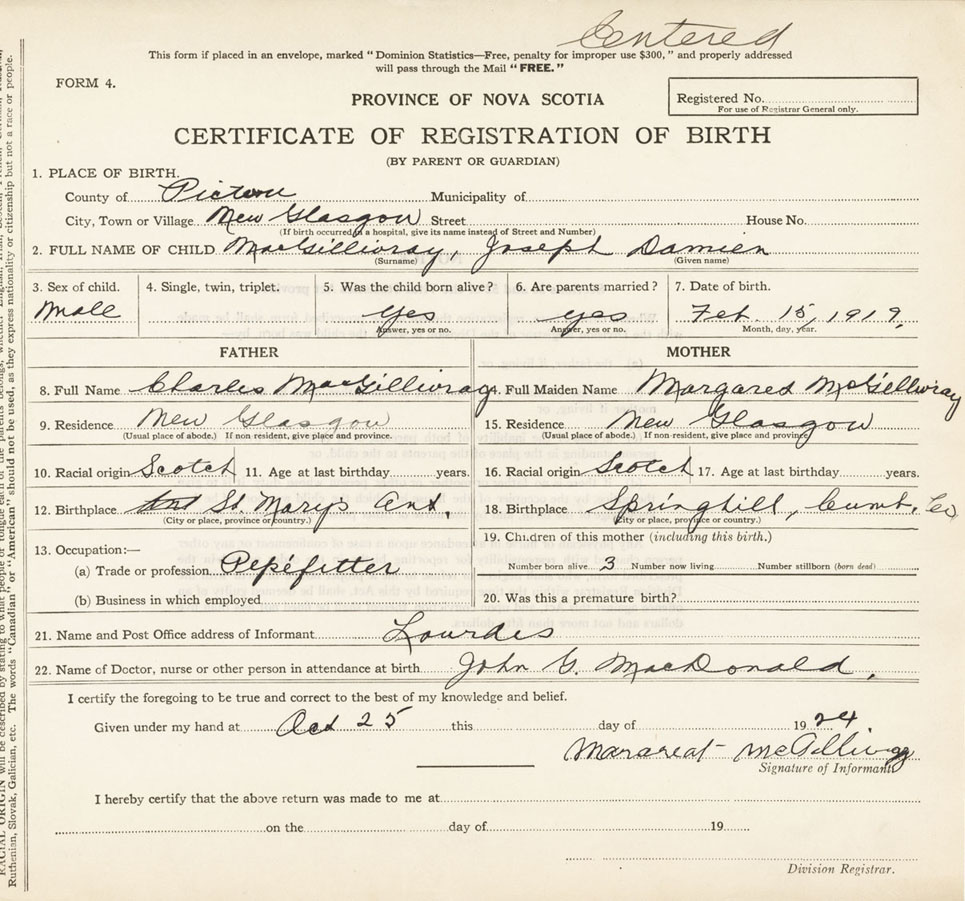 Centered
This form if placed in an envelope, marked "Dominion Statistics—Free, penalty for improper use $300," and properly addressed
will pass through the Mail "FREE."
FORM 4.
PROVINCE OF NOVA SCOTIA
Registered No.
For use of Registrar General only.
CERTIFICATE OF REGISTRATION OF BIRTH
(BY PARENT OR GUARDIAN)
1. PLACE OF BIRTH.
County of Pictou Municipality of
City, Town or Village New Glasgow Street House No.
(If birth occurred in a hospital, give its name instead of Street and Number)
2. FULL NAME OF CHILD MacGillivray, Joseph Damien
(Surname) (Given name)
3. Sex of child. 4. Single, twin, triplet. 5. Was the child born alive? 6. Are parents married? 7. Date of birth.
Male yes yes Feb. 15, 1919.
Answer, yes or no. Answer, yes or no. Month, day, year.
FATHER MOTHER
8. Full Name Charles MacGillivray 14. Full Maiden Name Margaret McGillivray
9. Residence New Glasgow 15. Residence New Glasgow
(Usual place of abode.) If non-resident, give place and province. (Usual place of abode.) If non-resident, give place and province
10. Racial origin Scotch 11. Age at last birthday years. 16. Racial origin Scotch 17. Age at last birthday years.
12. Birthplace St. Marys Ant. 18. Birthplace Springhill, Cumb. Co
(City or place, province or country.) (City or place, province or country.)
19. Children of this mother (including this birth.)
13. Occupation:—
(a) Trade or profession Pepéfitter Number born alive 3 Number now living Number stillborn (born dead)
(b) Business in which employed 20. Was this a premature birth?
21. Name and Post Office address of Informant Lourdes
22. Name of Doctor, nurse or other person in attendance at birth John G. MacDonald,
I certify the foregoing to be true and correct to the best of my knowledge and belief.
Given under my hand at Oct 25 this day of 1924
Margreat McGillivray
Signature of Informant
I hereby certify that the above return was made to me at
on the day of 19
Division Registrar.
Ruthenian, Slovak, Galician, etc. The words "Canadian" or "American" should not be used, as they express nationality or citizenship but not a race or people.